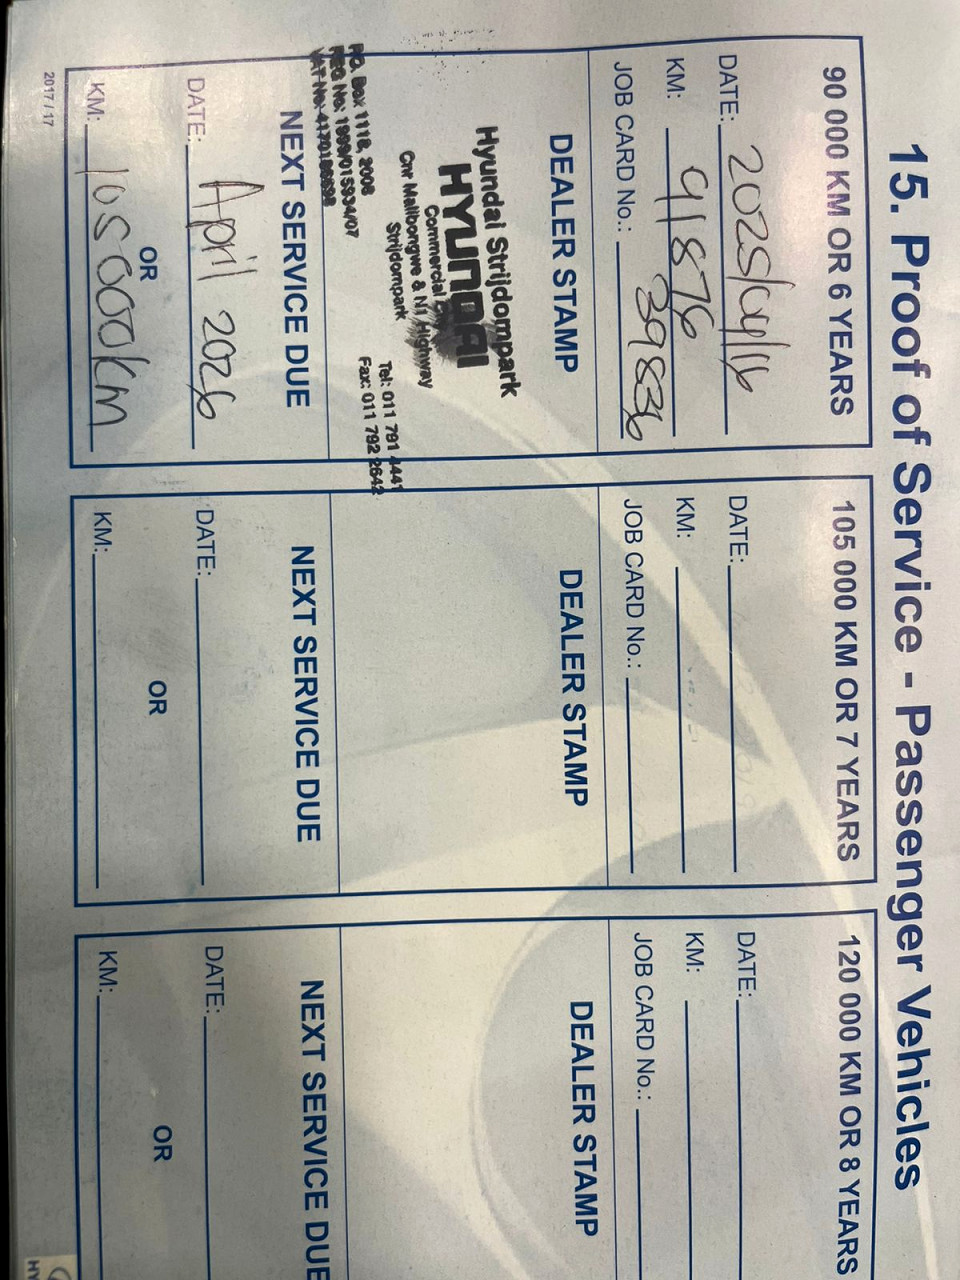 15. Proof of Service - Passenger Vehicles
90 000 KM OR 6 YEARS
DATE: 2025/04/16
KM: 91876
JOB CARD No.: 39836
DEALER STAMP
Hyundai Strijdompark
HYUNDAI
Commercial
Cnr Malibongwe & N1 Highway
Strijdompark
Tel: 011 791 4441
Fax: 011 792 2642
P.O. Box 1118, 2006
REG No: 1999/015934/07
VAT No:
NEXT SERVICE DUE
DATE: April 2026
OR
KM: 105 000km
2017 / 17
105 000 KM OR 7 YEARS
DATE:
KM:
JOB CARD No.:
DEALER STAMP
NEXT SERVICE DUE
DATE:
OR
KM:
120 000 KM OR 8 YEARS
DATE:
KM:
JOB CARD No.:
DEALER STAMP
NEXT SERVICE DUE
DATE:
OR
KM:
HY